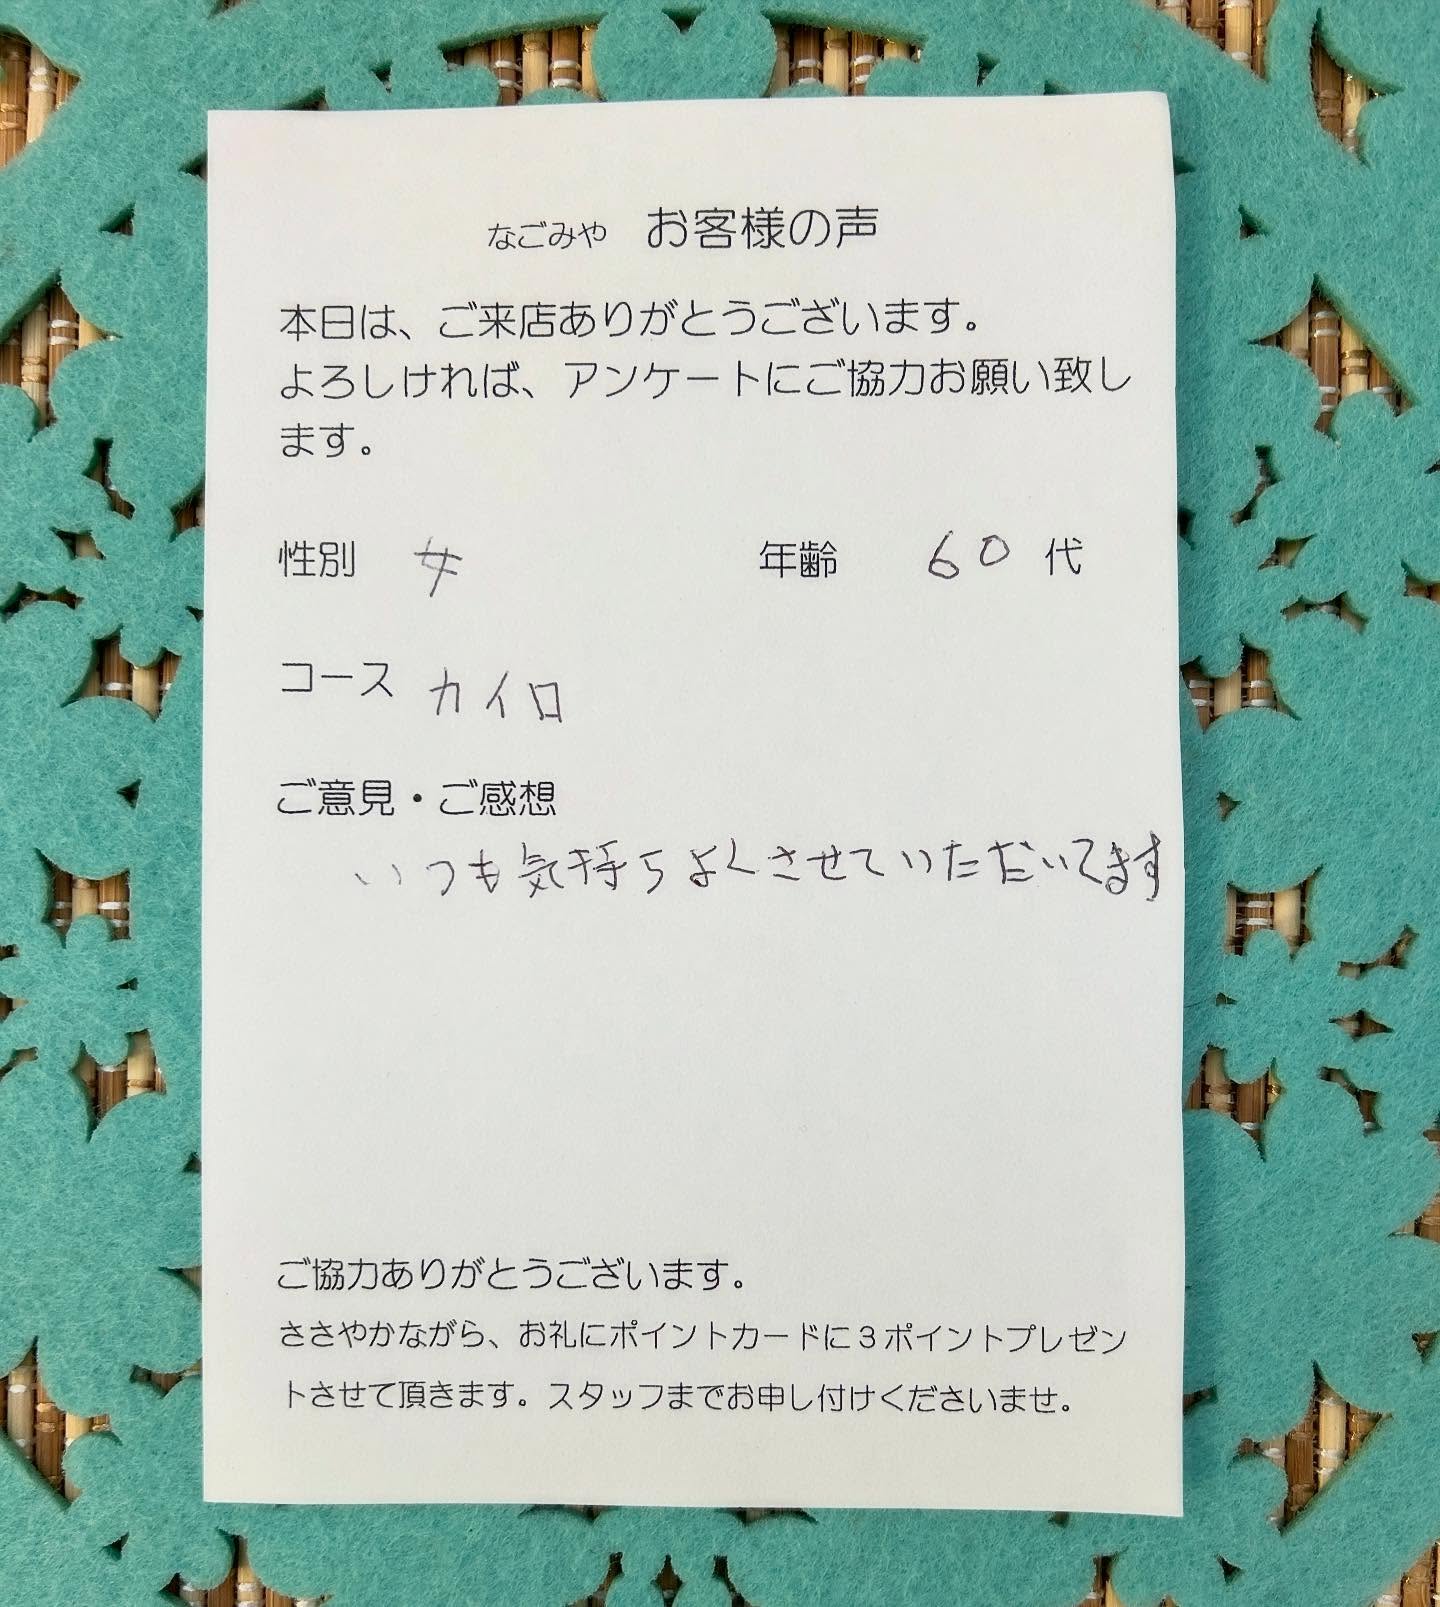 なごみや お客様の声
本日は、ご来店ありがとうございます。
よろしければ、アンケートにご協力お願い致し
ます。
性別 女 年齢 60 代
コース カイロ
ご意見・ご感想
いつも気持ちよくさせていただいてます
ご協力ありがとうございます。
ささやかながら、お礼にポイントカードに3ポイントプレゼン
トさせて頂きます。スタッフまでお申し付けくださいませ。